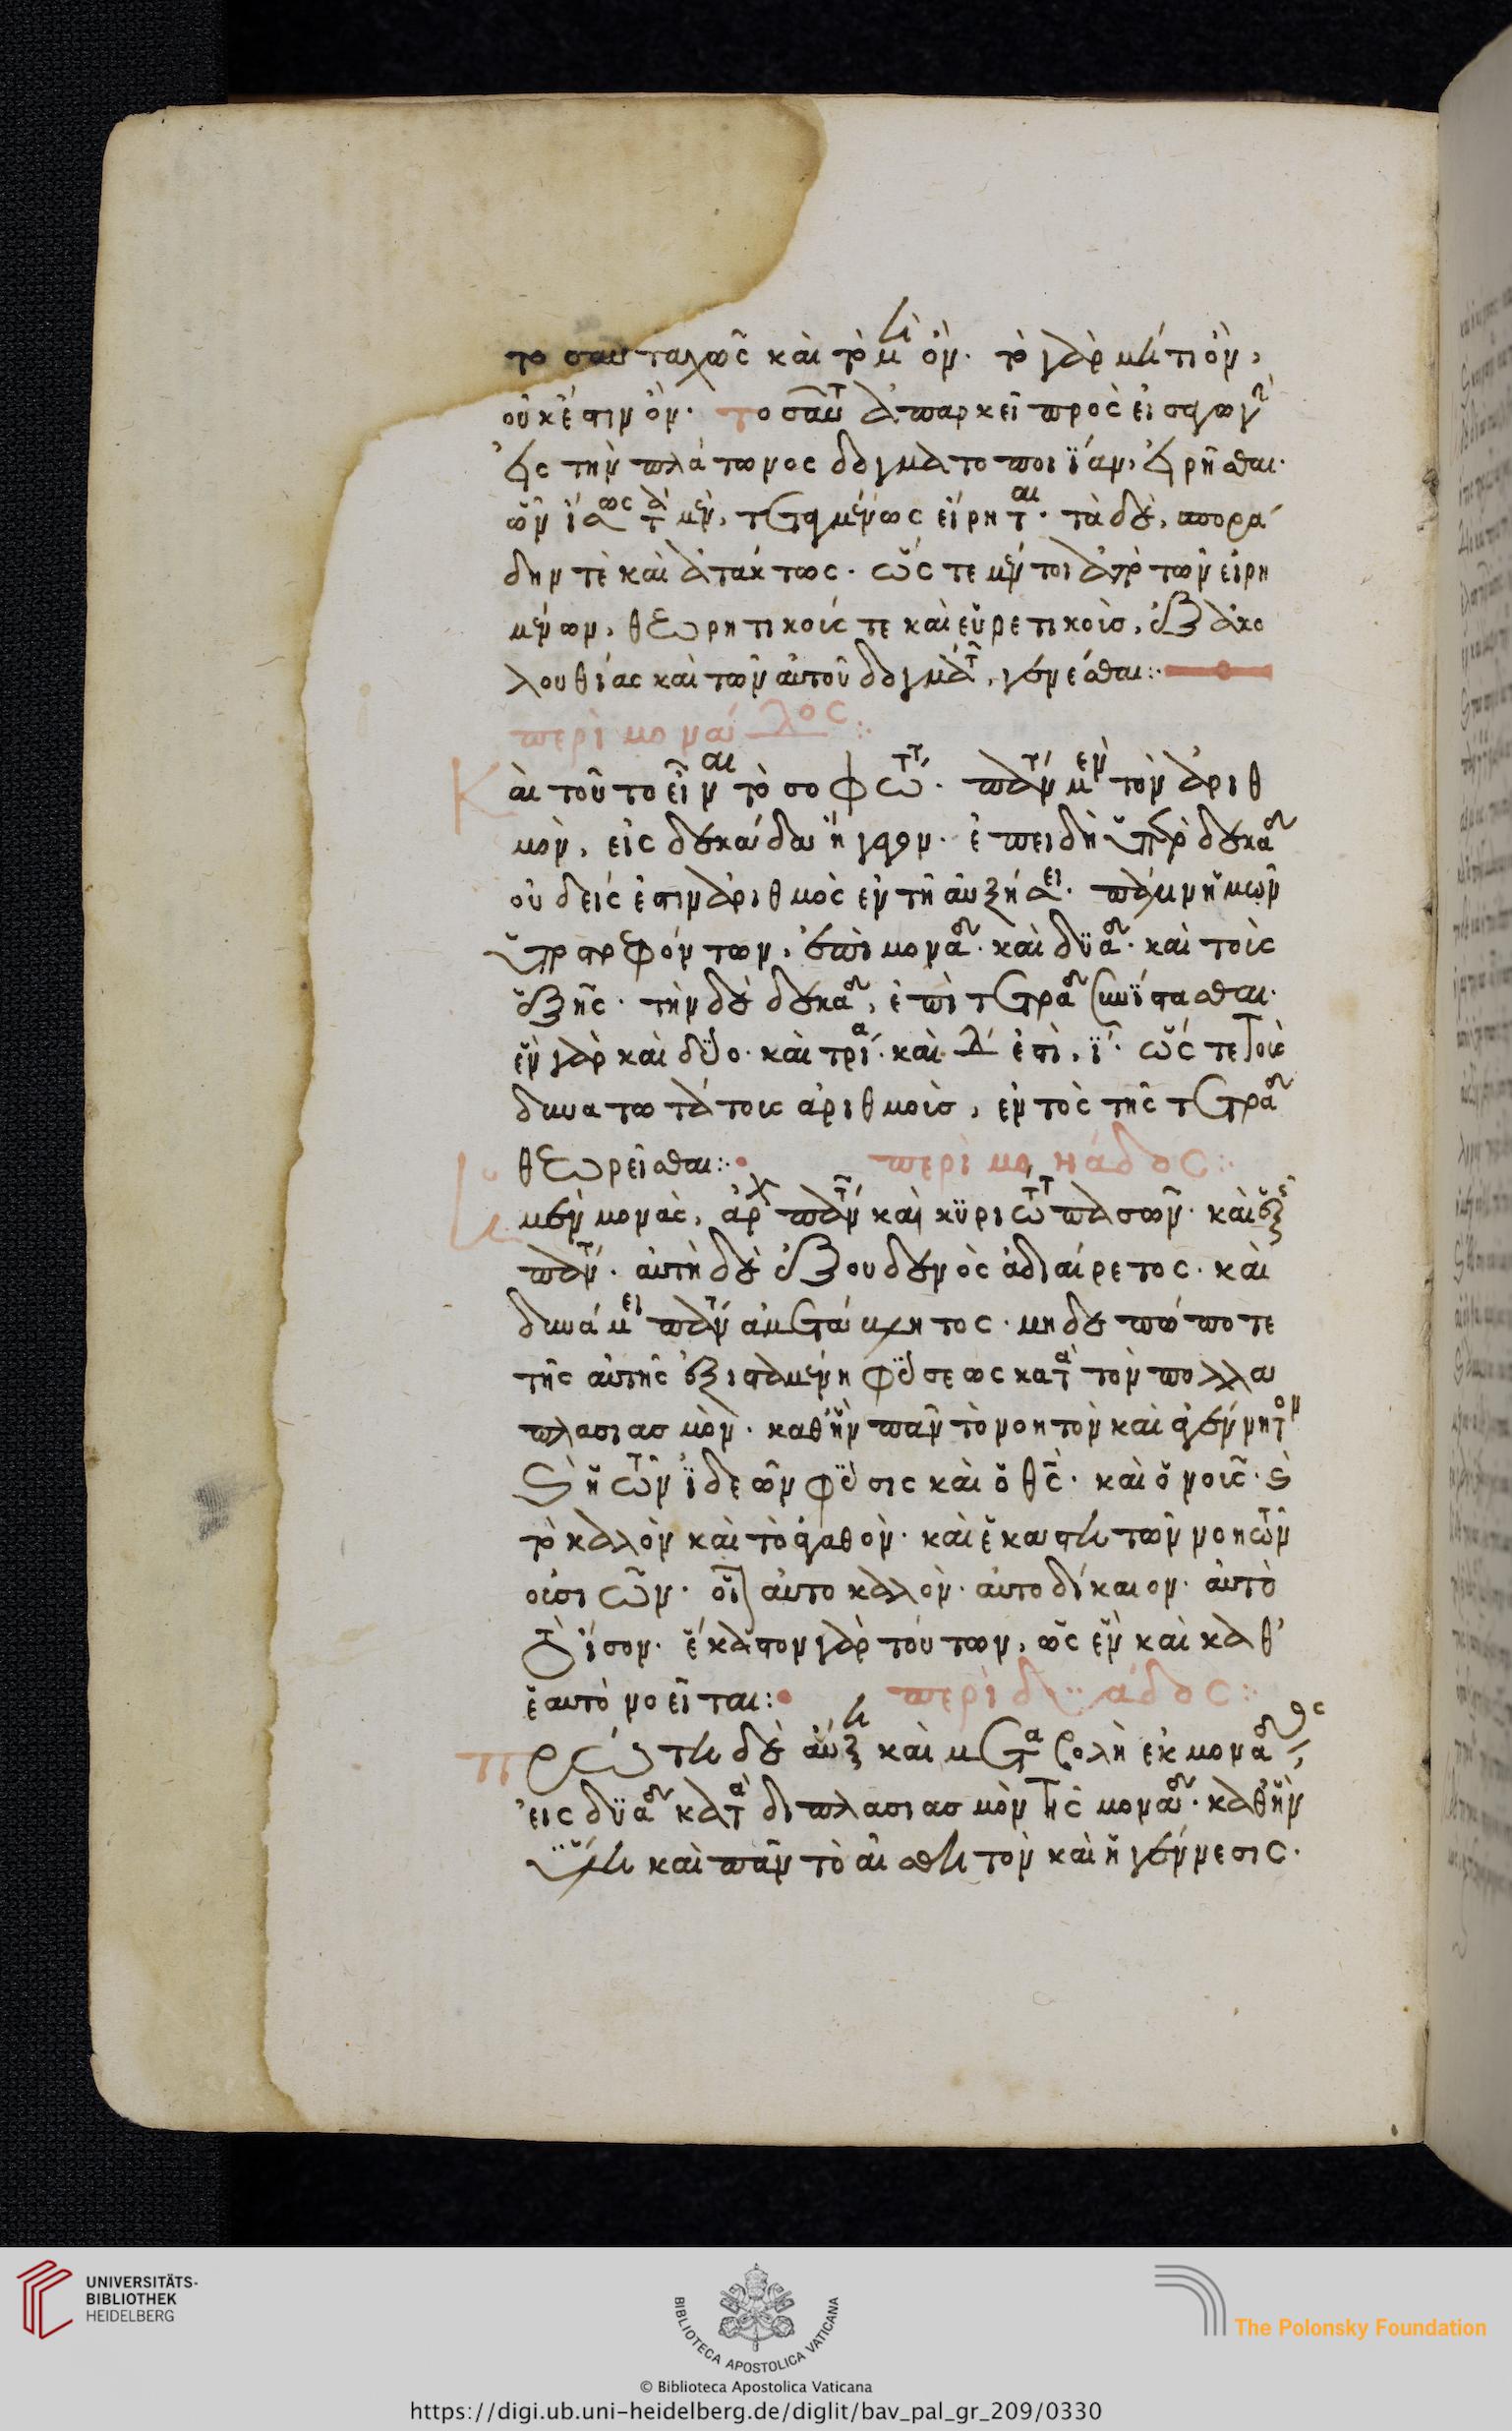 το σαυταχῶς καὶ τὸ μὴ ὄν. τὸ γὰρ μήτι ὄν,
οὐκ ἔστιν ὄν. τοσαῦτ ἀπαρκεῖ πρὸς εἰσαγωγ
εἰς τὴν πλάτωνος δογματοποιΐαν, εἰρῆσθαι.
ὧν ἴσως τὰ μὲν, τεταγμένως εἴρηται. τὰ δὲ, σπορά
δην τὲ καὶ ἀτάκτως. ὥς τε μέντοι ἀπὸ τῶν εἰρη
μένων, θεωρητικοίς τε καὶ εὑρετικοὶσ, ἐξ ἀκο
λουθίας καὶ τῶν αὐτοῦ δογμάτ, γενέσθαι:
περὶ μονάδος:
Καὶ τοῦτο εἶναι τὸ σοφώτ. πάντ μὲν τὸν ἀριθ
μὸν, εἰς δεκάδα ἤγαγον. ἐπειδὴ ὑπὲρ δεκάδ
οὐδεὶς ἐστιν ἀριθμὸς ἐν τῆ αὐξήσει. πάλιν ἡμῶν
ὑποστρεφόντων, ἐπὶ μονάδ. καὶ δυάδ. καὶ τοὶς
ἑξῆς. τὴν δὲ δεκάδ, ἐπὶ τετράδ συνίστασθαι.
ἓν γὰρ καὶ δύο. καὶ τρία. καὶ δ ἐστὶ, ϊ. ὥς τε τοὶς
δυνατωτάτοις ἀριθμοὶσ, ἐντὸς τῆς τετράδ
θεωρεῖσθαι: περὶ μονάδος:
μὲν μονὰς, ἀρχ πάντ καὶ κυριωτ πασῶν. καὶ ἐξ
πάντ. αὐτὴ δὲ ἐξ ουδενὸς ἀδιαίρετος. καὶ
δυνάμει πάντ αμετάκλητος. μηδε πώποτε
τῆς αὐτῆς ἐξισταμένη φύσεως κατὰ τὸν πολλα
πλασιασμὸν. καθἣν πᾶν τὸ νοητὸν καὶ ἀγέννητον
καὶ ἡ τῶν ἰδεῶν φύσις καὶ ὁ θς. καὶ ὁ νοῦς. καὶ
τὸ καλὸν καὶ τὸ ἀγαθὸν. καὶ ἑκάστη τῶν νοητῶν
οὐσιῶν. οἷον αὐτο καλὸν. αὐτο δίκαιον. αὐτὸ
τὸ ἴσον. ἕκαστον γὰρ τούτων, ὡς ἓν καὶ καθ'
ἑαυτὸ νοεῖται: περὶ δυάδος:
πρώτη δὲ αὔξη καὶ μεταβολὴ ἐκ μονάδος,
εἰς δυάδ κατὰ διπλασιασμὸν τῆς μονάδ. καθἣν
ὕλη καὶ πᾶν τὸ αἰσθητὸν καὶ ἡ γέννεσις.
UNIVERSITÄTS-
BIBLIOTHEK
HEIDELBERG
BIBLIOTECA APOSTOLICA VATICANA
The Polonsky Foundation
© Biblioteca Apostolica Vaticana
https://digi.ub.uni-heidelberg.de/diglit/bav_pal_gr_209/0330